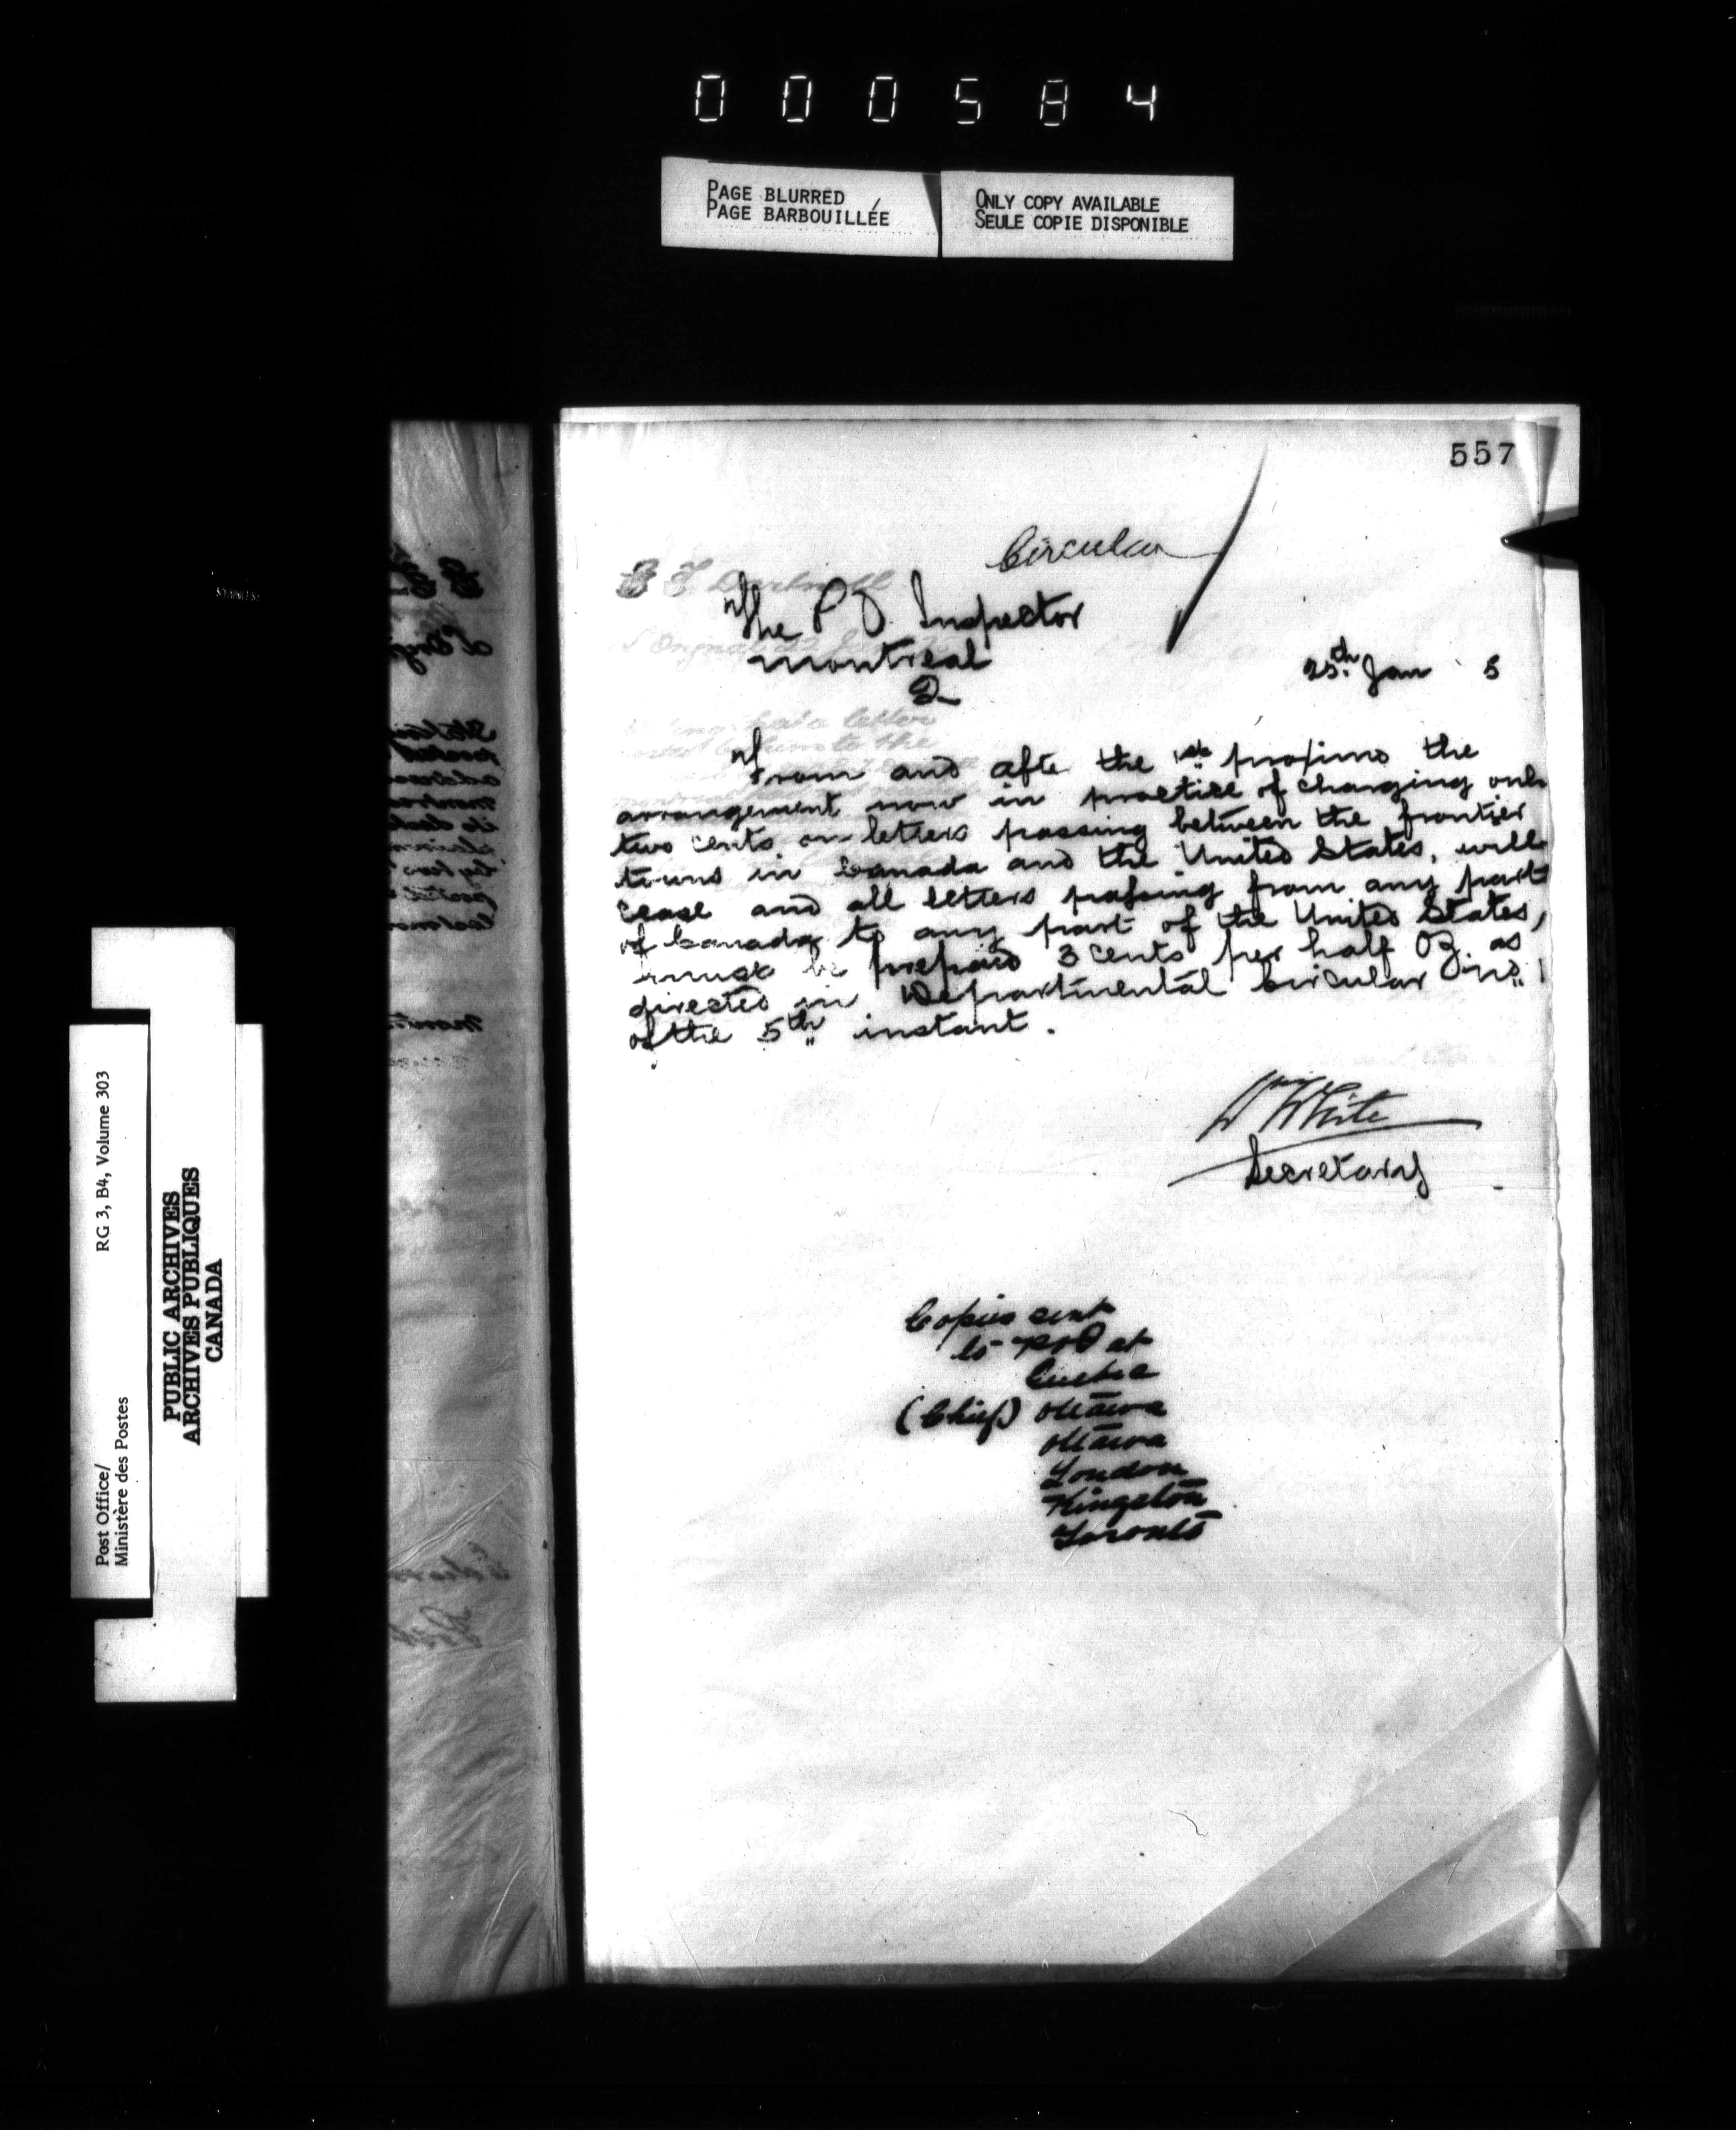 000584
PAGE BLURRED
PAGE BARBOUILLÉE
ONLY COPY AVAILABLE
SEULE COPIE DISPONIBLE
557
Circular
The P O Inspector
Montreal
Q
25th Jan 5
From and afte the 1st proximo the
arrangement now in practice of charging only
two cents on letters passing between the frontier
towns in Canada and the United States, will
cease and all letters passing from any part
of Canada to any part of the United States,
must be prepaid 3 cents per half Oz. as
directed in Departmental Circular no. 1
of the 5th instant.
W White
Secretary
Copies sent
to P.O.I at
Quebec
(Chief) Ottawa
Ottawa
London
Kingston
Toronto
Post Office/
Ministère des Postes
RG 3, B4, Volume 303
PUBLIC ARCHIVES
ARCHIVES PUBLIQUES
CANADA